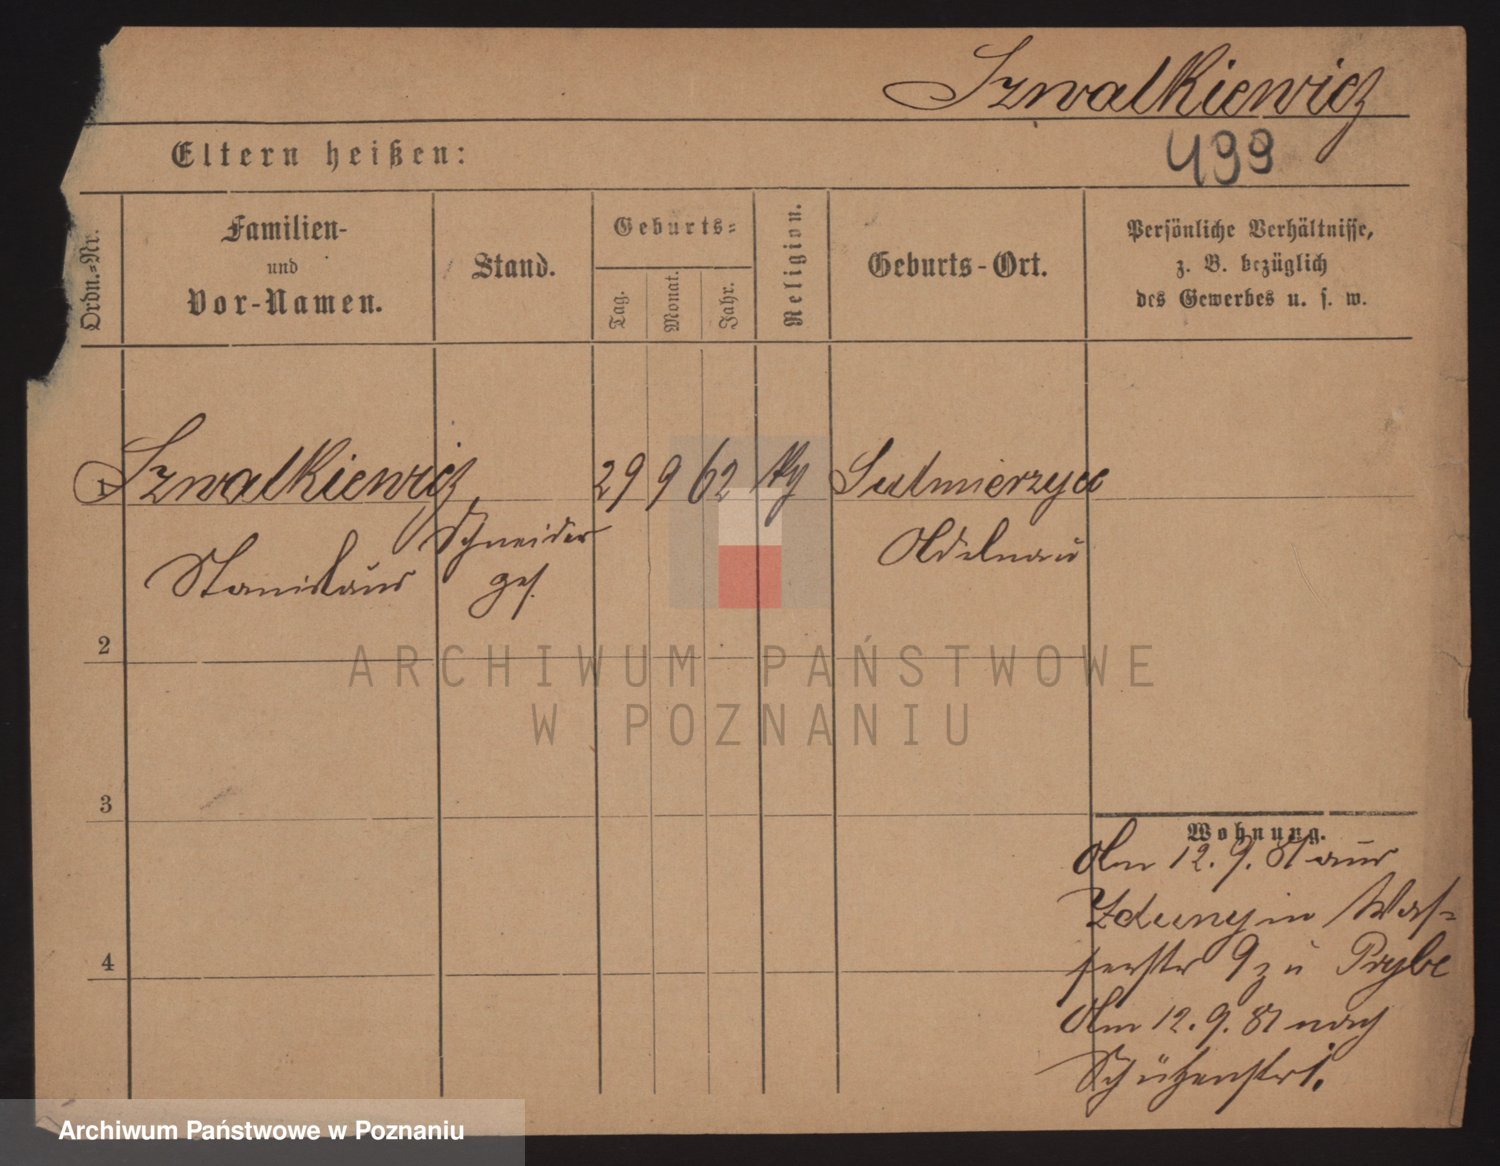 Szwalkiewicz
499
Eltern heißen:
Ordn.=Nr.
Familien-
und
Vor-Namen.
Stand.
Geburts=
Tag.
Monat.
Jahr.
Religion.
Geburts-Ort.
Persönliche Verhältnisse,
z. B. bezüglich
des Gewerbes u. s. w.
1 Szwalkiewicz, 29 9 62 Sulmierzyce
Stanislaus
Schneider
ges.
Adelnau
2
3
4
Wohnung.
Am 12. 9. 81 aus
Zduny in Was=
serstr 9 zu Prybe
Am 12. 9. 81 nach
Schützenstr 1.
ARCHIWUM PAŃSTWOWE
W POZNANIU
Archiwum Państwowe w Poznaniu